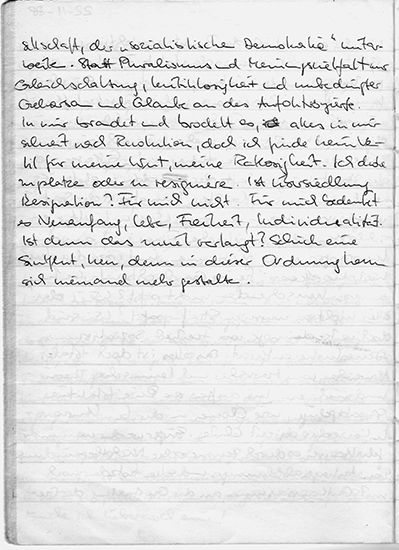 ellschaft, der „sozialistischen Demokratie" unter-
werfe. Statt Pluralismus und Meinungsvielfalt nur
Gleichschaltung, kritiklosigkeit und unbedingter
Gehorsam und Glaube an das
In mir brandet und brodelt es, alles in mir
schreit nach Revolution, doch ich finde kein Ven-
til für meine Wut, meine Ratlosigkeit. Ich drohe
zu platzen oder zu resignieren. Ist
Resignation? Für mich nicht. Für mich bedeutet
es Neuanfang, Leben, Freiheit, Individualität.
Ist denn das zuviel verlangt? Schick eine
Sintflut, Herr, denn in dieser Ordnung kann
sich niemand mehr gestalten.